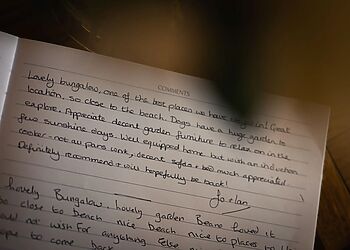 COMMENTS
Lovely bungalow, one of the best places we have in! Great
location. So close to the beach. Dogs have a huge garden to
explore. Appreciate decent garden furniture to relax on in the
few sunshine days. Well equipped home but with an induction
cooker - not au pans work, decent sofas + bed much appreciated.
Definitely recommend + will hopefully be back!
Lovely Bungalow, lovely garden Beane loved it
so close to beach nice beach nice to places to
not wish for anything else
to come back